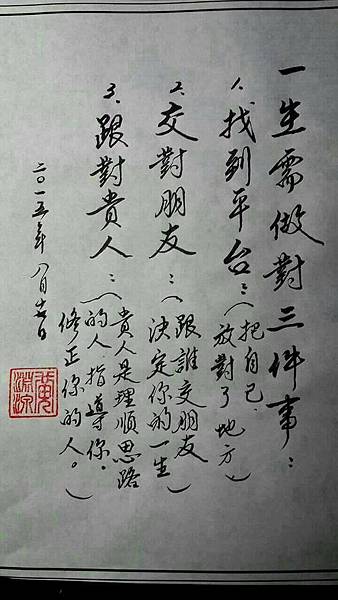 一生需做對三件事：
1、找到平台：（把自己
放對了地方）
2、交對朋友：（跟誰交朋友
決定你的一生）
3、跟對貴人：（貴人是理順思路
的人，指導你、
修正你的人。）
二〇一五年八月 日